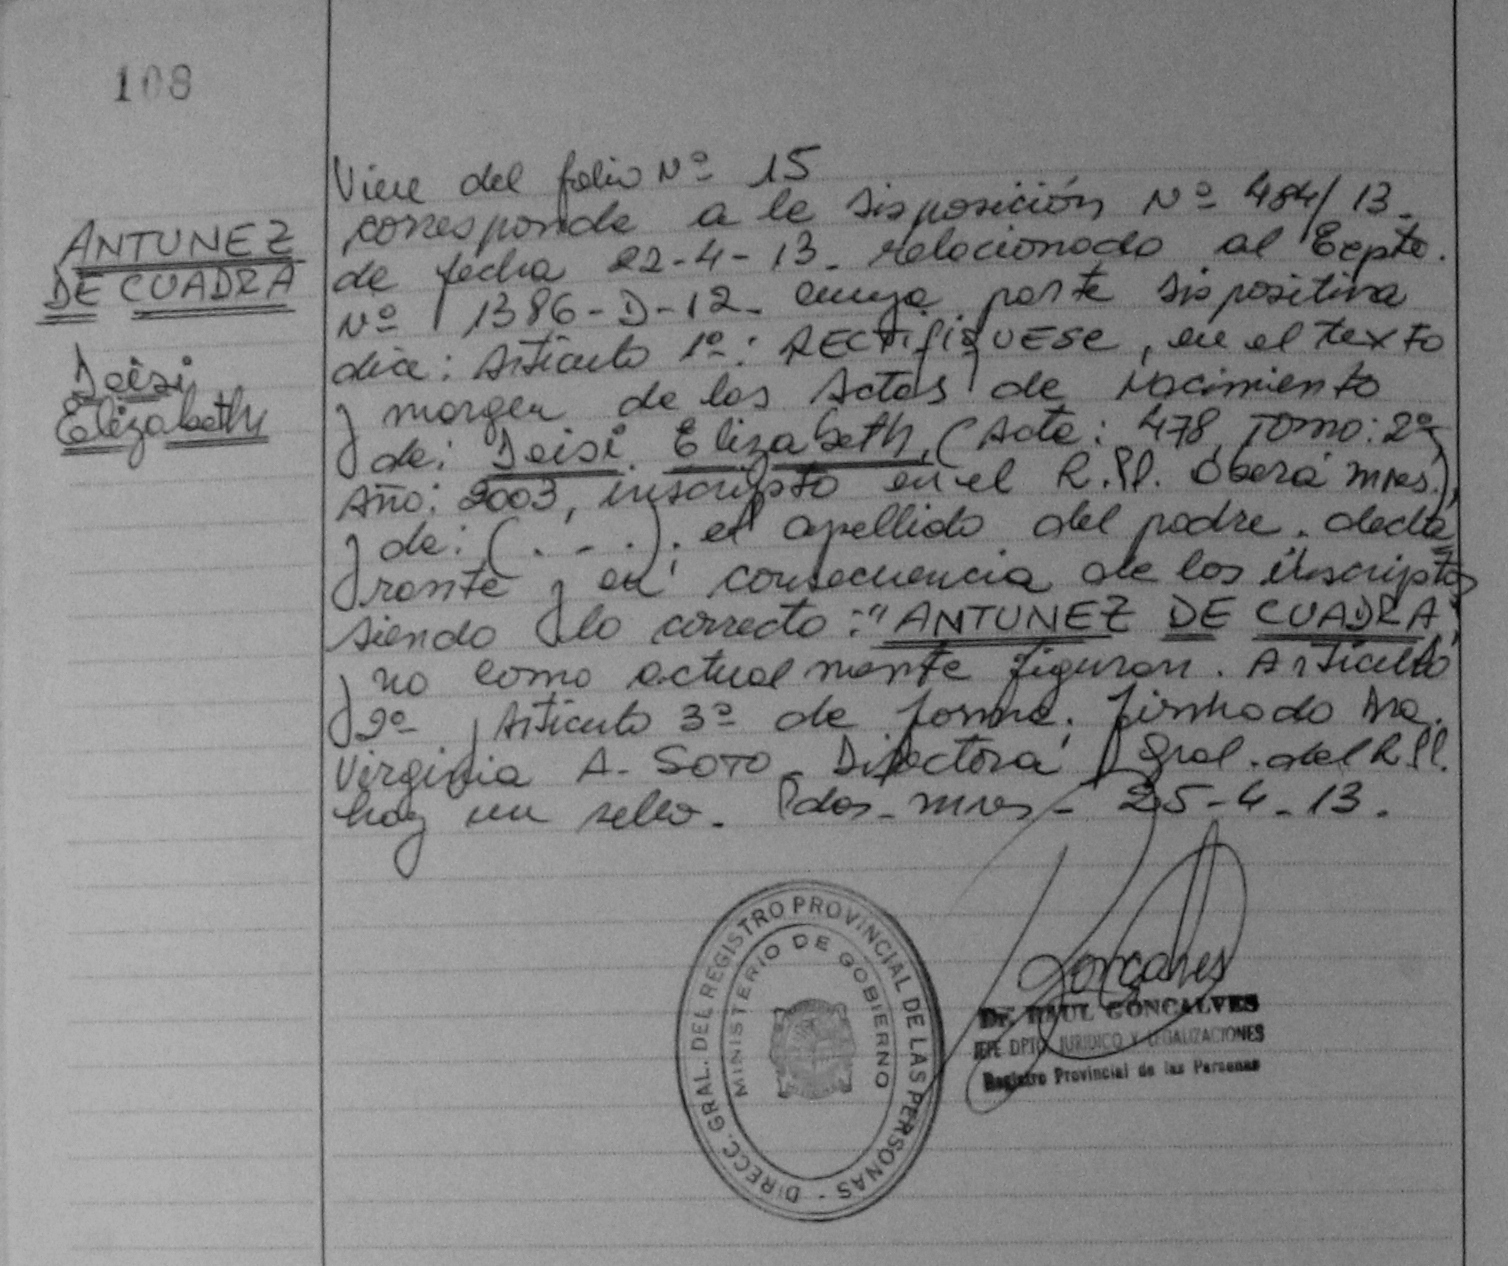 108
ANTUNEZ
DE CUADRA
Deisi
Elizabeth
Viene del folio Nº 15
corresponde a la Disposición Nº 484/13.
de fecha 22-4-13. relacionado al Expte.
Nº 1386-D-12. cuya parte dispositiva
dice: Artículo 1º: RECTIFIQUESE, en el texto
y margen de las Actas de Nacimiento
de: Deisi Elizabeth, (Acta: 478, Tomo: 2º,
Año: 2003, inscripto en el R.PP. Oberá Mnes.),
y de: (. - .). el apellido del padre decla
rante y en consecuencia de los inscriptos
siendo lo correcto: "ANTUNEZ DE CUADRA"
y no como actualmente figuran. Artículo
2º y Artículo 3º de forma. firmado Dra.
Virginia A. SOTO. Directora Gral. del R.PP.
hay un sello. Pdas. mnes - 25-4-13.
DIRECC. GRAL. DEL REGISTRO PROVINCIAL DE LAS PERSONAS -
MINISTERIO DE GOBIERNO
Goncalves
Dr. RAUL GONCALVES
JEFE DPTO. JURIDICO Y LEGALIZACIONES
Registro Provincial de las Personas